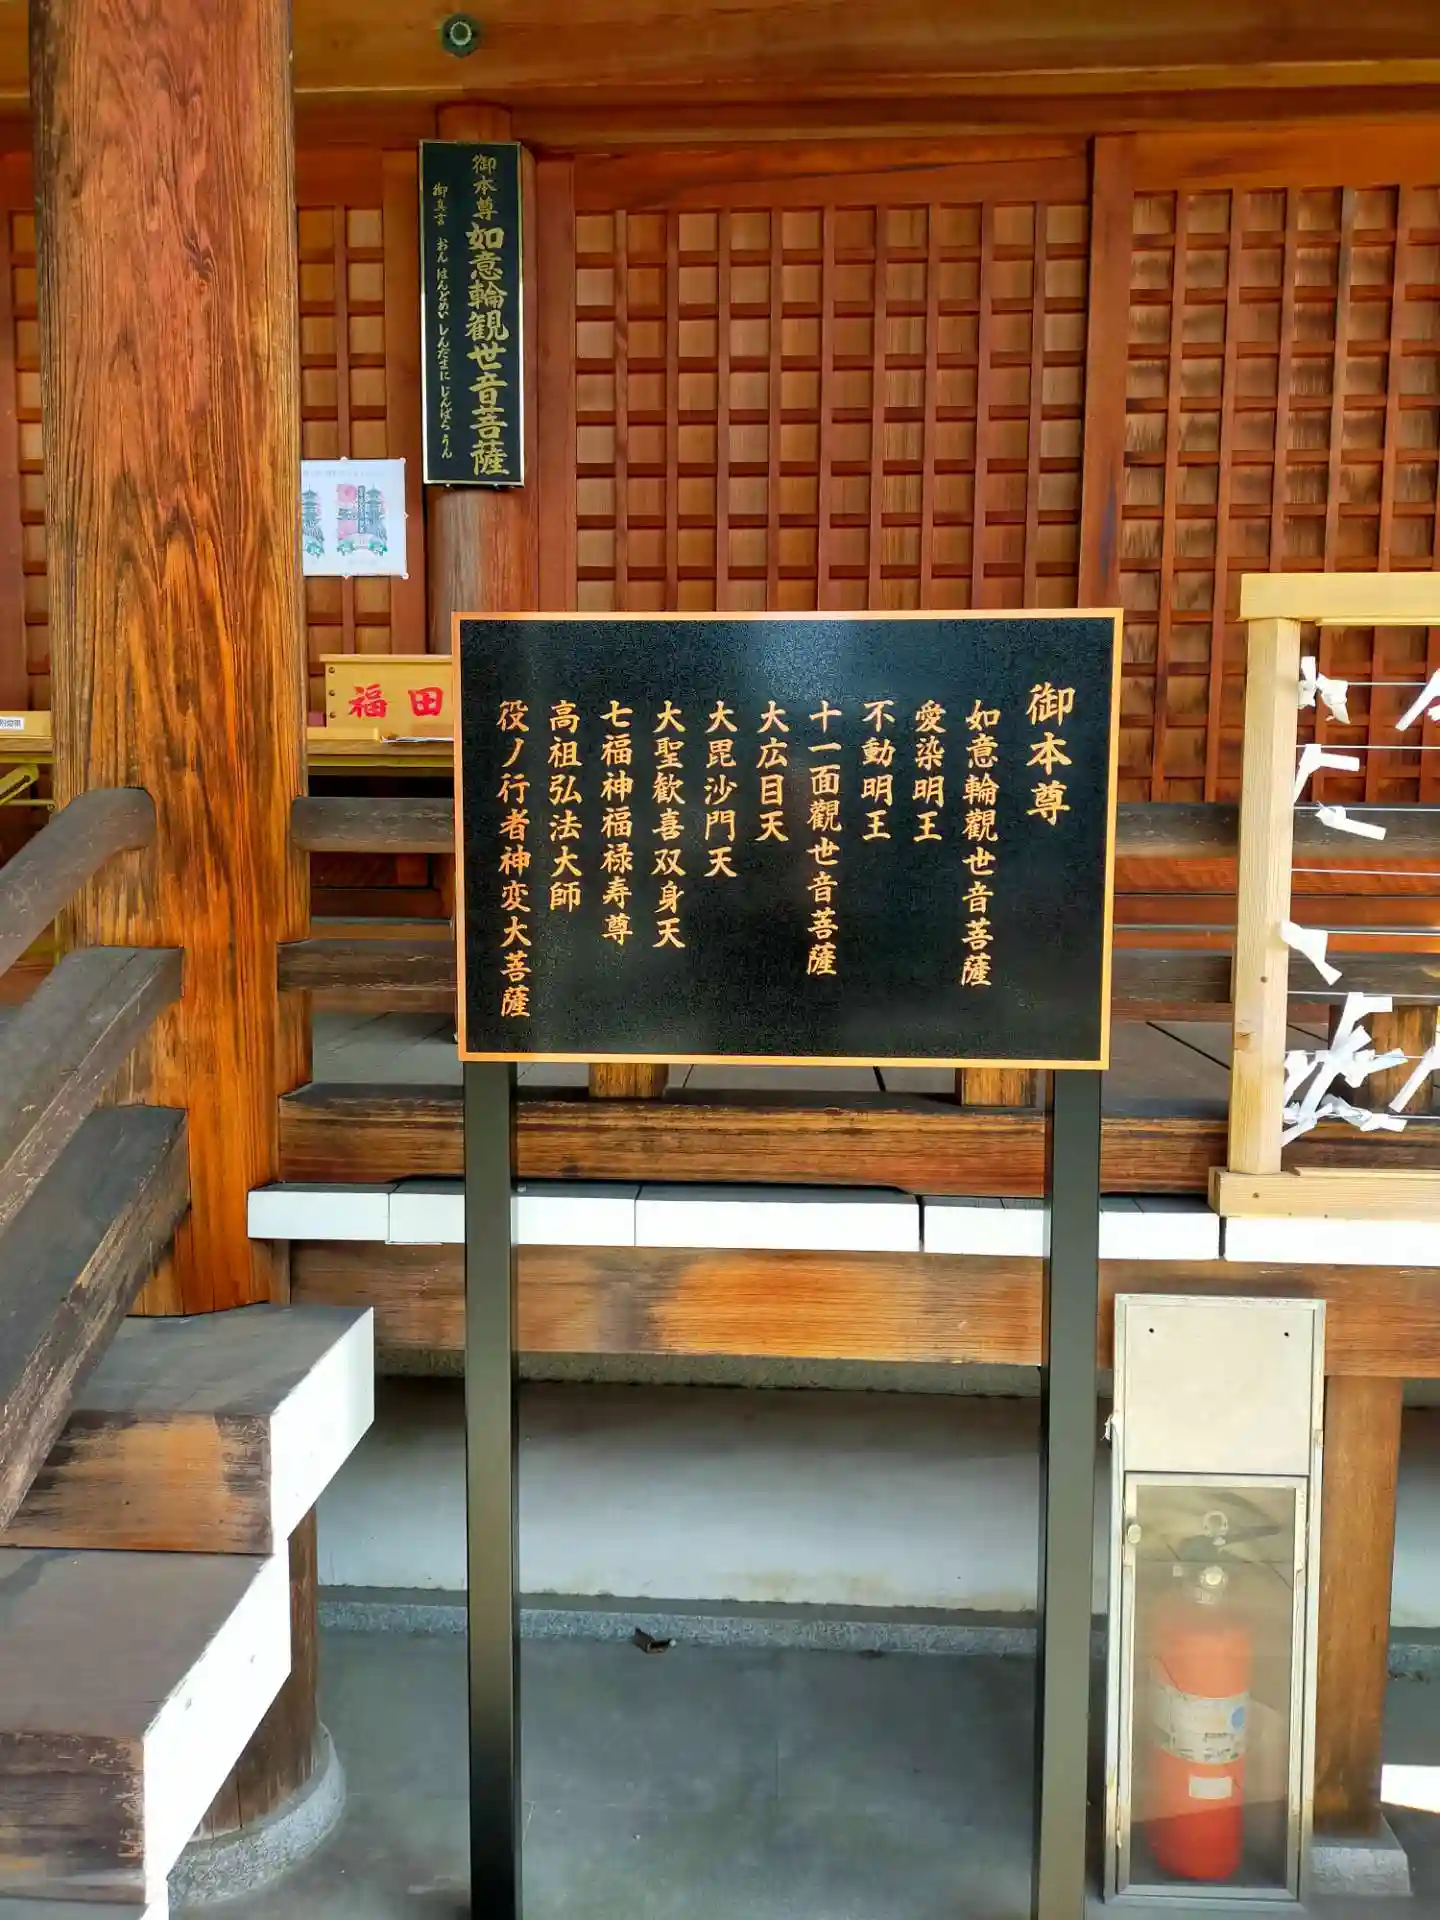 御本尊
如意輪觀世音菩薩
愛染明王
不動明王
十一面觀世音菩薩
大広目天
大毘沙門天
大聖歓喜双身天
七福神福禄寿尊
高祖弘法大師
役ノ行者神変大菩薩
御本尊如意輪観世音菩薩
御真言 おん はんどめい しんだまに じんばら うん
福田